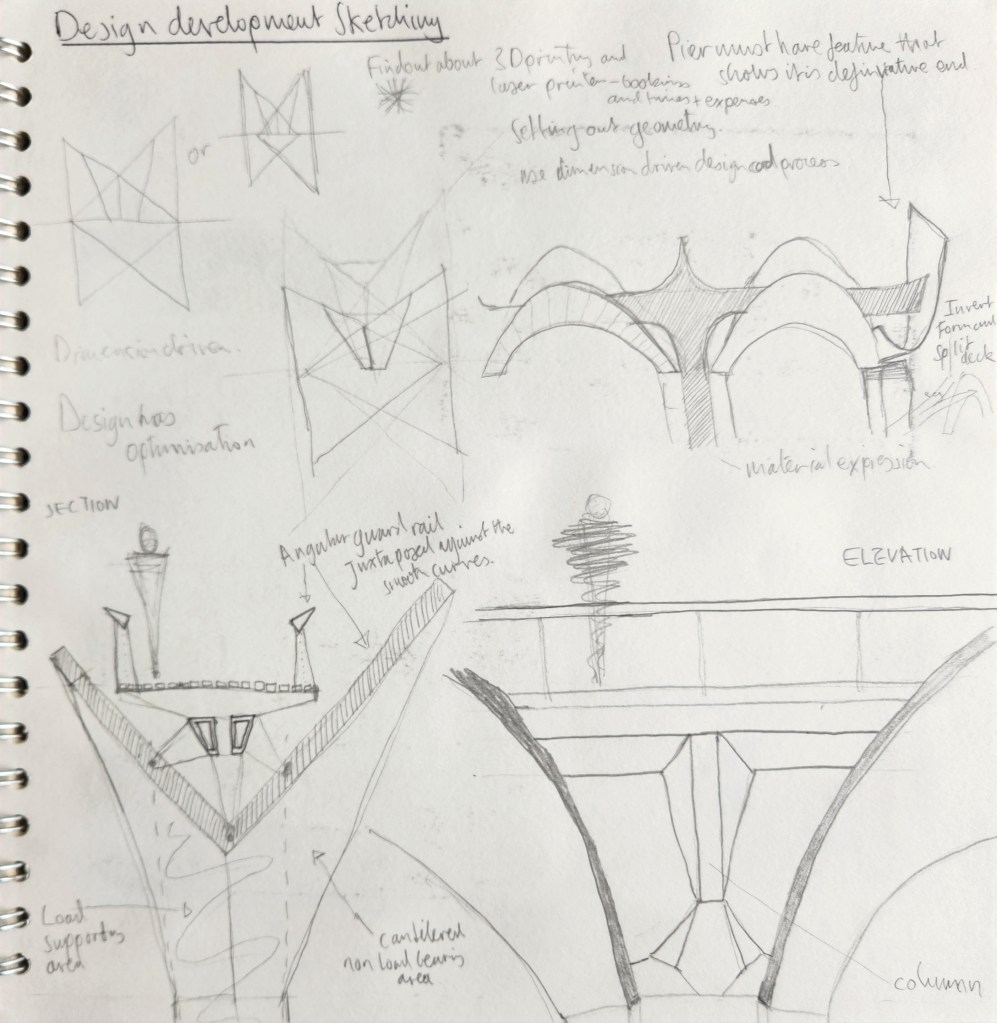 Design development Sketching
Find out about 3D printing and
laser printer – bookings
and times + expenses
Pier must have feature that
shows it is definative end
Setting out geometry.
use dimension driven design and process
or
Dimension driven.
Design has
optimisation
Invert
form and
split deck
material expression
SECTION
Angular guard rail
juxtaposed against the
smooth curves.
ELEVATION
Load
supporting
area
cantilered
non load bearing
area
column